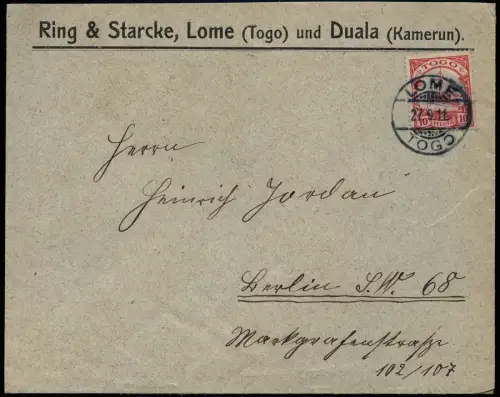 Ring & Starcke, Lome (Togo) und Duala (Kamerun).
TOGO
10 10
LOME
27.9.11.
TOGO
Herrn
Heinrich Jordan
Berlin S.W. 68
Markgrafenstraße
102/107